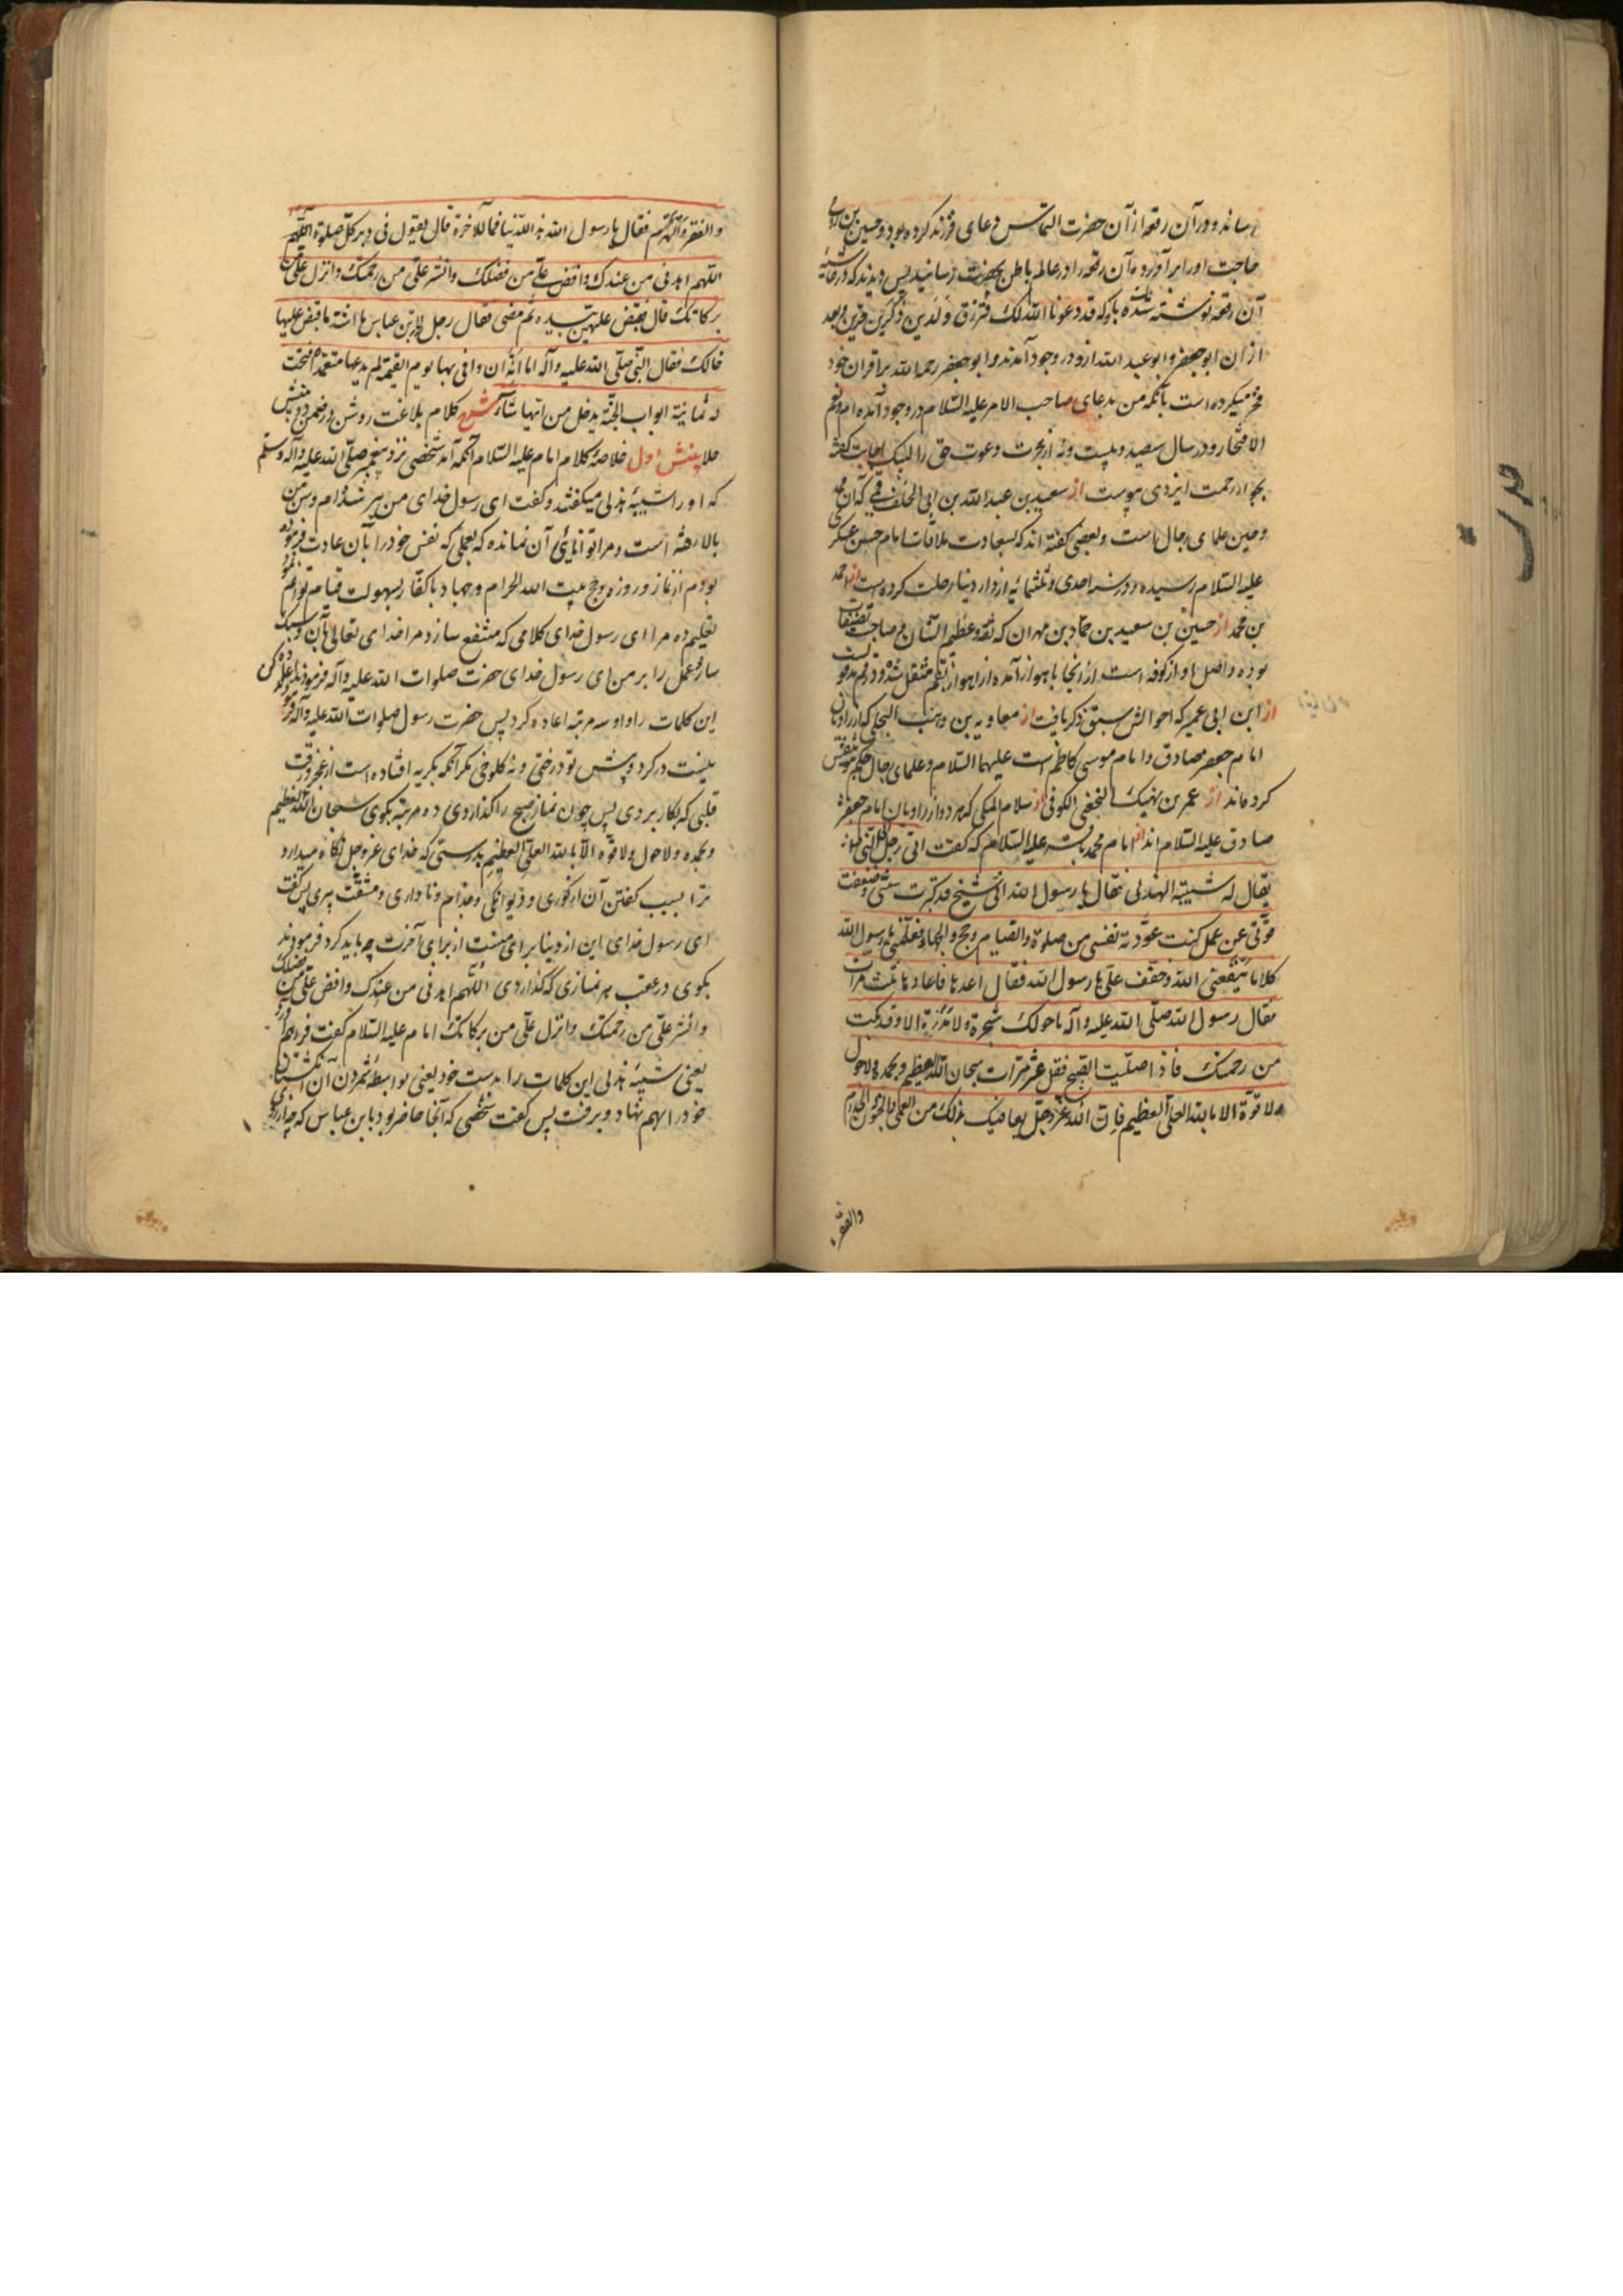 رساند و در آن رقعه از آن حضرت التماس دعای فرزند کرده بود و حسین بن روح
حاجت او را بر آورده آن رقعه را در عالم باطن بحضرت رسانید پس دیدند که در حاشیهٔ
آن رقعه نوشته شده بود که قد دعونا الله لک فترزق ولدین ذکرین خیرین و بعد
از ان ابو جعفر و ابو عبد الله از و در وجود آمدند و ابو جعفر رحمه الله بر اقران خود
فخر میکرده است بآنکه من بدعای صاحب الامر علیه السلام در وجود آمده ام و نعم
الافتخار و در سال سیصد و بیست و نه از هجرت دعوت حق را لبیک اجابت گفته
بجوار رحمت ایزدی پیوست از سعید بن عبد الله بن ابی الخلف قمی که آن هم
و حین علمای رجال است و بعضی گفته اند که بسعادت ملاقات امام حسن عسکری
علیه السلام رسیده و در سنه احدی و ثلثمائه از دار دنیا رحلت کرده است از احمد
بن محمد از حسین بن سعید بن حماد بن مهران که ثقه و عظیم الشان و صاحب تصنیفات
بوده و اصل او از کوفه است از انجا باهواز آمده از اهواز بقم منتقل شده و در قم مدفونست
از ابن ابی عمیر که احوالش سبق ذکر یافت از معاویه بن وهب البجلی که از راویان
امام جعفر صادق و امام موسی کاظم است علیهما السلام و علمای رجال حکم بتوثیقش
کرده اند از عمر بن نهیک النخعی الکوفی از سلام المکی که هر دو از راویان امام جعفر
صادق علیه السلام اند از امام محمد باقر علیه السلام که گفت اتی رجل الی النبی
یقال له شیبة الهذلی فقال یا رسول الله انی شیخ قد کبرت سنی و ضعفت
قوتی عن عمل کنت عودته نفسی من صلوة و القیام و حج و الجهاد فعلمنی یا رسول الله
کلاما ینفعنی الله و خفف علی یا رسول الله فقال اعدها فاعادها ثلث مرات
فقال رسول الله صلی الله علیه و آله ما حولک شجرة و لا مدرة الا و قد بکت
من رحمتک فاذا صلیت الصبح فقل عشر مرات سبحان الله العظیم و بحمده و لا حول
و لا قوة الا بالله العلی العظیم فان الله عز و جل یعافیک بذلک من العمی و الجنون و الجذام
والفقر
والفقر والهرم فقال یا رسول الله هذا للدنیا فما للآخرة قال یقول فی دبر کل صلوة اللهم
اللهم اهدنی من عندک و افض علی من فضلک و انشر علی من رحمتک و انزل علی من
برکاتک قال فقبض علیهن بیده ثم مضی فقال رجل لابن عباس ما اشد ما قبض علیها
خالک فقال النبی صلی الله علیه و آله اما انه ان وافی بها یوم القیمة لم یدعها متعمدا فتحت
له ثمانیة ابواب الجنة یدخل من ایها شاء شرح کلام بلاغت روشن در ضمن دو بینش
جلا بینش اول خلاصهٔ کلام امام علیه السلام آنکه آمد شخصی نزد پیغمبر صلی الله علیه و آله و سلم
که او را شیبهٔ هذلی میکفتند و کفت ای رسول خدای من پیر شده ام و سن من
بالا رفته است و مرا توانایی آن نمانده که بعملی که نفس خود را بآن عادت فرموده
بودم از نماز و روزه و حج بیت الله الحرام و جهاد با کفار بسهولت قیام توانم نمود
تعلیم ده مرا ای رسول خدای کلامی که منتفع سازد مرا خدای تعالی بآن و سبک
ساز عمل را بر من ای رسول خدای حضرت صلوات الله علیه و آله فرمودند اعاده کن
این کلمات را و او سه مرتبه اعاده کرد پس حضرت رسول صلوات الله علیه و آله فرمود
نیست در کرد و پیش تو درختی و نه کلوخی مکر آنکه بکریه افتاده است از عجز و رقت
قلبی که بکار بردی پس چون نماز صبح را گذاردی ده مرتبه بکوی سبحان الله العظیم
و بحمده و لا حول و لا قوة الا بالله العلی العظیم بدرستی که خدای عز و جل نکاه میدارد
ترا بسبب گفتن آن از کوری و دیوانکی و جذام و ناداری و مشقت پیری پس کفت
ای رسول خدای این از دنیا برای منست از برای آخرت چه باید کرد فرمودند
بکوی در عقب هر نمازی که گذاردی اللهم اهدنی من عندک و افض علی من فضلک
و انشر علی من رحمتک و انزل علی من برکاتک امام علیه السلام کفت فراهم آورد
یعنی شیبهٔ هذلی این کلمات را بدست خود یعنی بواسطهٔ شمردن آن انکشتان
خود را بهم نهاد و برفت پس کفت شخصی که آنجا حاضر بود بابن عباس که چه از روی